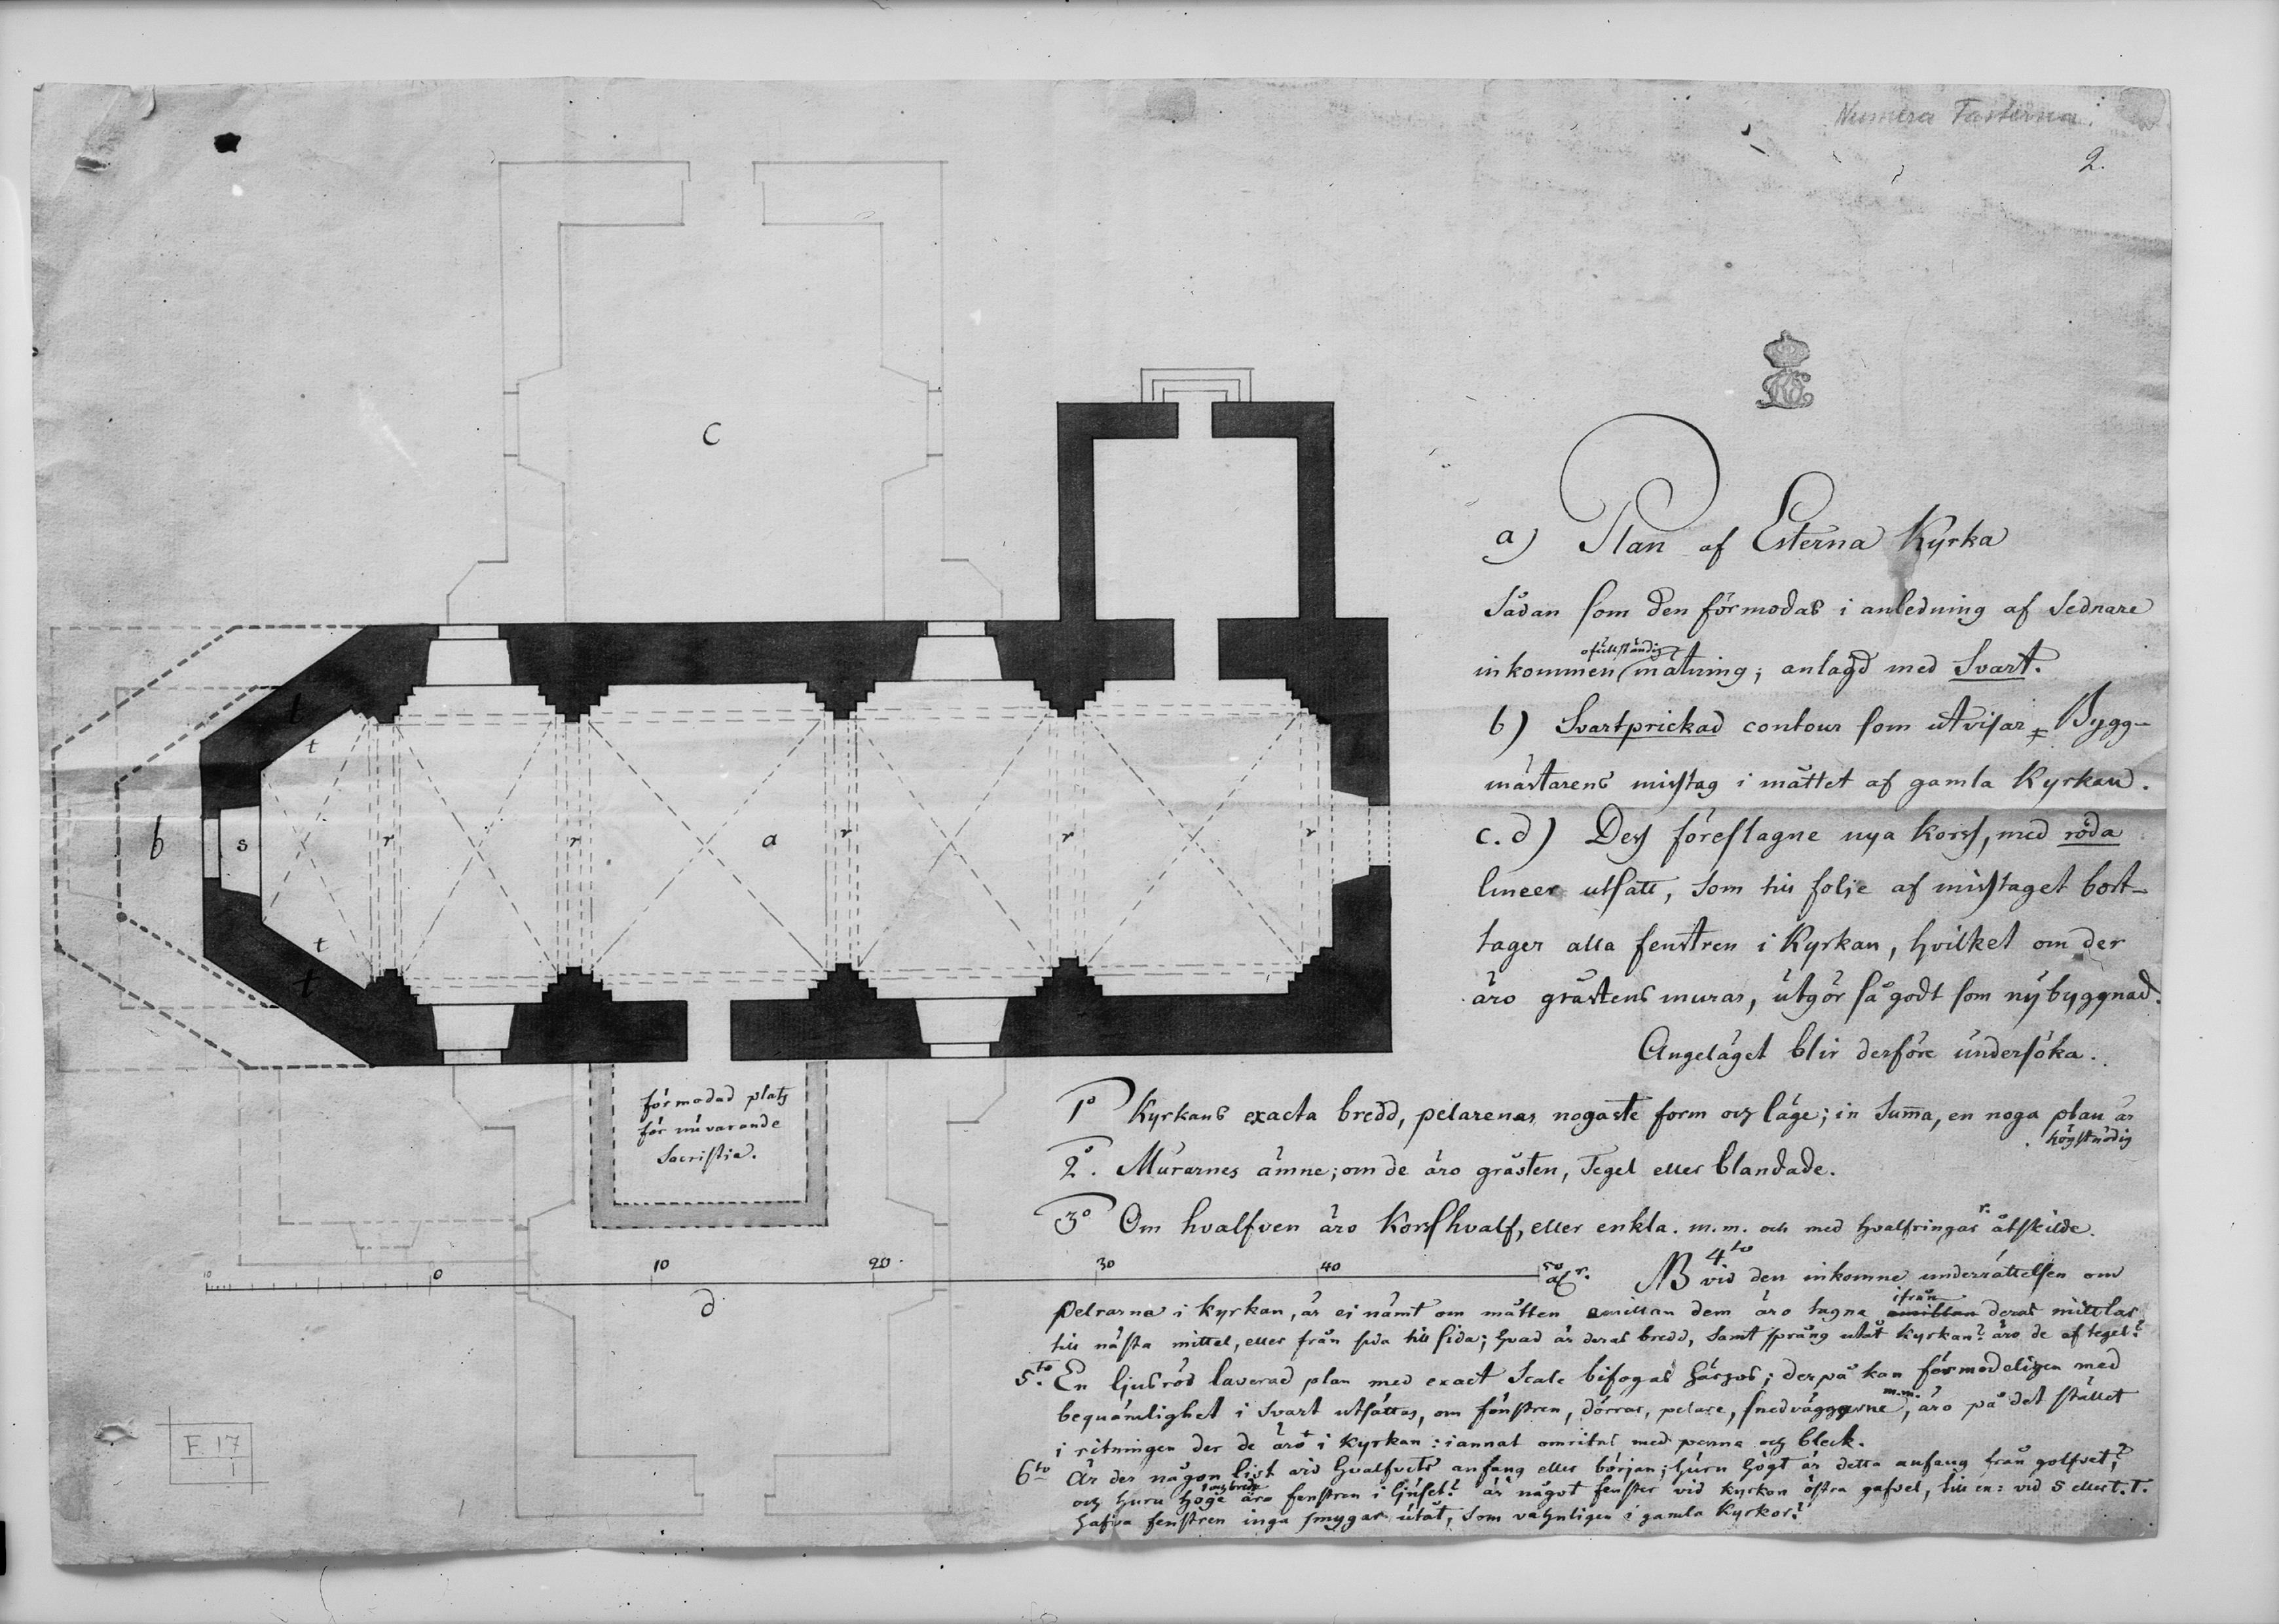 Numera Fasterna.
2.
a) Plan af Esterna Kyrka
Sådan som den förmodas i anledning af sednare
ofullständig
inkommen mätning; anlagd med Svart.
b) Svartprickad contour som utvisar Bygg-
mästarens misstag i måttet af gamla Kyrkan.
c. d) Dess föreslagne nya korss, med röda
lineer utsatt, som till följe af misstaget bort-
tager alla fenstren i Kyrkan, hvilket om der
äro gråstens murar, utgör så godt som nybyggnad.
Angeläget blir derföre undersöka.
1o Kyrkans exacta bredd, pelarenas nogaste form och läge; in Summa, en noga plan är
högstnödig
2o. Murarnes ämne; om de äro gråsten, Tegel eller blandade.
3o Om hvalfven äro Korsshvalf, eller enkla. m.m. och med hvalfringar r. åtskilde.
4to
NB vid den inkomne underrättelsen om
pelrarne i kyrkan, är ei nämt om måtten emillan dem äro tagne ifrån emillan deras midtlar
till nästa mittel, eller från sida till sida; hvad är deras bredd, samt språng utåt kyrkan? äro de af tegel?
5to. En ljusröd laverad plan med exact Scale bifogas härhos; derpå kan förmodeligen med
beqvämlighet i svart utsättas, om fönstren, dörrar, pelare, snedväggarne m.m., äro på det stället
i ritningen der de äro i kyrkan: i annat omritas med penna och bleck.
6to Är der någon list vid hvalfvets anfang eller början; huru högt är detta anfang från golfvet?
och huru höge och brede äro fenstren i ljuset? är något fenster vid kyrkan östra gafvel, till ex: vid s eller t.t.
hafva fenstren inga smygar utåt, som vahnligen i gamla Kyrkor?
c
l
t
b
s
r
r
a
r
r
r
t
t
förmodad plats
för nuvarande
Sacristie.
10
0
10
20
30
40
50
alr.
d
F. 17
1